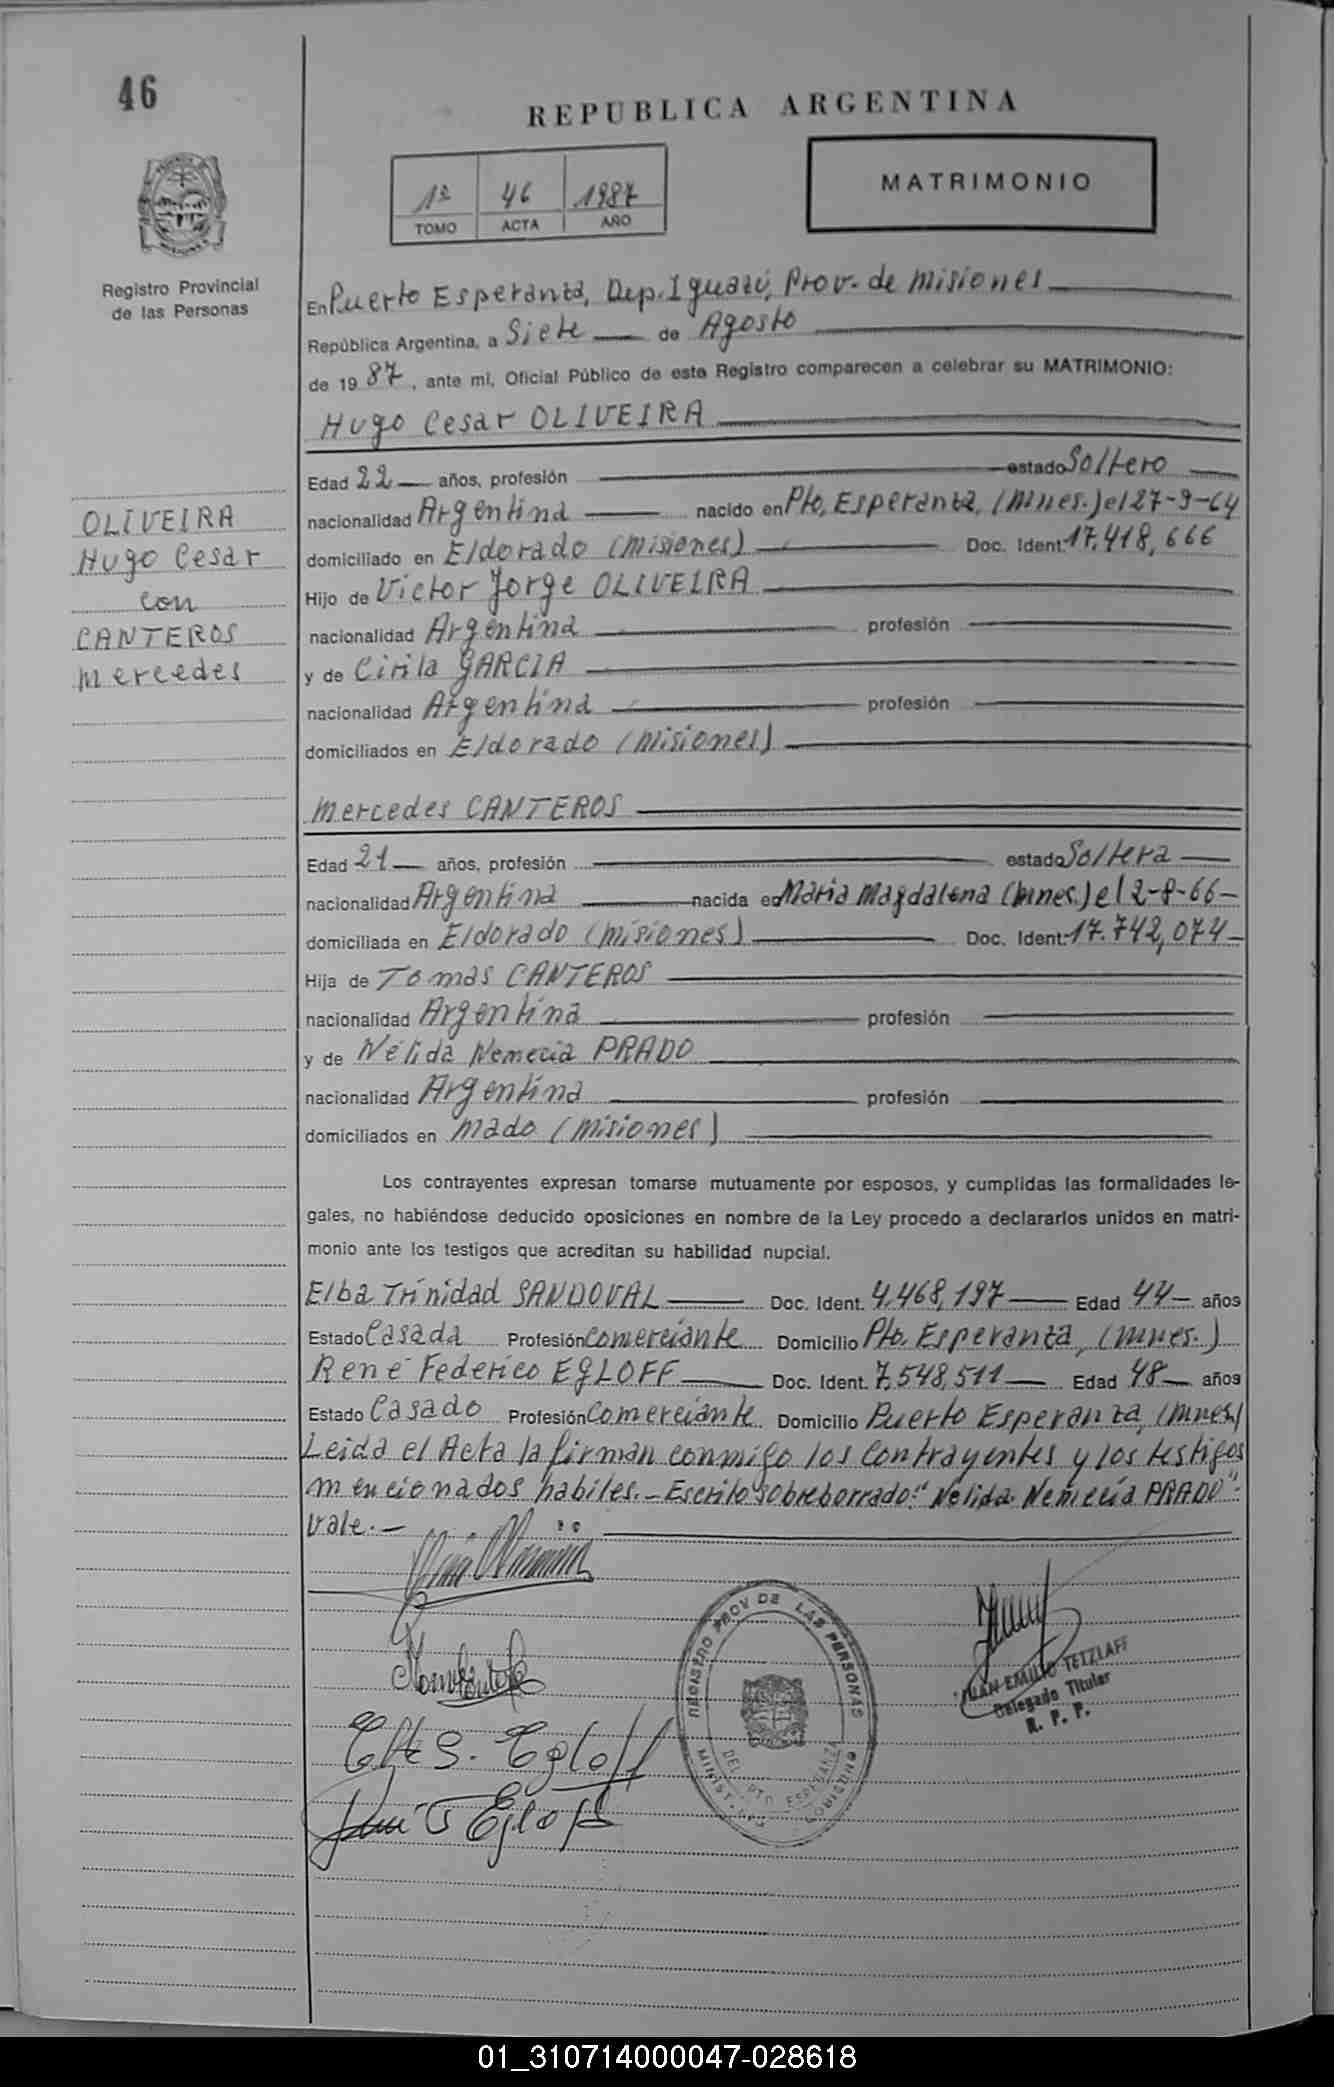 46
REPUBLICA ARGENTINA
1º 46 1987
TOMO ACTA AÑO
MATRIMONIO
Registro Provincial
de las Personas
En Puerto Esperanza, Dep. Iguazú, Prov. de Misiones
República Argentina, a Siete de Agosto
de 19 87, ante mí, Oficial Público de este Registro comparecen a celebrar su MATRIMONIO:
Hugo Cesar OLIVEIRA
Edad 22 años, profesión estado Soltero
nacionalidad Argentina nacido en Pto, Esperanza, (Mnes.) el 27-9-64
domiciliado en Eldorado (Misiones) Doc. Ident. 17.418,666
Hijo de Victor Jorge OLIVEIRA
nacionalidad Argentina profesión
y de Cirila GARCIA
nacionalidad Argentina profesión
domiciliados en Eldorado (Misiones)
OLIVEIRA
Hugo Cesar
con
CANTEROS
Mercedes
Mercedes CANTEROS
Edad 21 años, profesión estado Soltera
nacionalidad Argentina nacida en Maria Magdalena (Mnes.) el 2-8-66-
domiciliada en Eldorado (Misiones) Doc. Ident: 17.742,074-
Hija de Tomas CANTEROS
nacionalidad Argentina profesión
y de Nélida Nemecia PRADO
nacionalidad Argentina profesión
domiciliados en Mado (Misiones)
Los contrayentes expresan tomarse mutuamente por esposos, y cumplidas las formalidades le-
gales, no habiéndose deducido oposiciones en nombre de la Ley procedo a declararlos unidos en matri-
monio ante los testigos que acreditan su habilidad nupcial.
Elba Trinidad SANDOVAL Doc. Ident. 4.468,197 Edad 44 años
Estado Casada Profesión Comerciante Domicilio Pto. Esperanza, (Mnes.)
René Federico EGLOFF Doc. Ident. 7,548,511 Edad 48 años
Estado Casado Profesión Comerciante Domicilio Puerto Esperanza, (Mnes)
Leida el Acta la firman conmigo los Contrayentes y los testigos
mencionados habiles.- Escrito sobreborrado:" Nélida Nemecia PRADO".
Vale.-
REGISTRO PROV DE LAS PERSONAS
DEL. PTO ESPERANZA
JUAN EMILIO TETZLAFF
Delegado Titular
R. P. P.
S. Egloff
Egloff
01_310714000047-028618